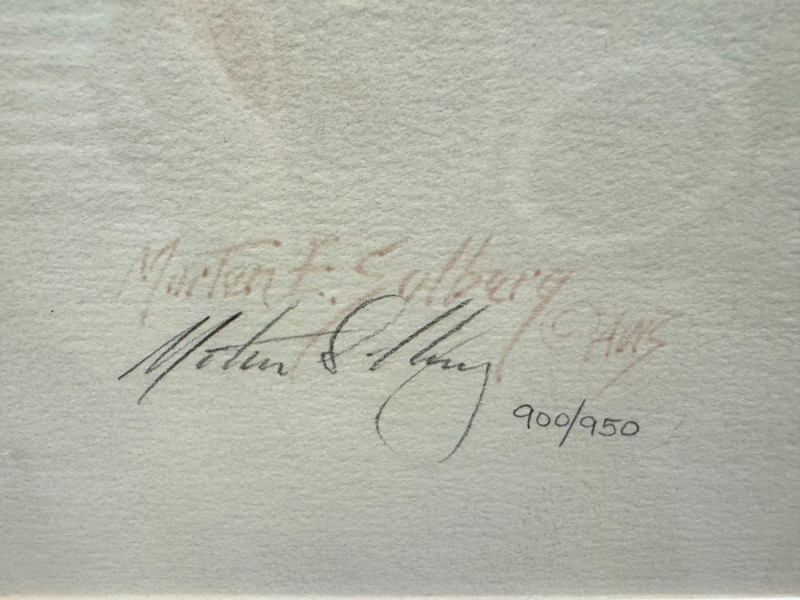 Morten E. Solberg © AWS
Morten Solberg
900/950